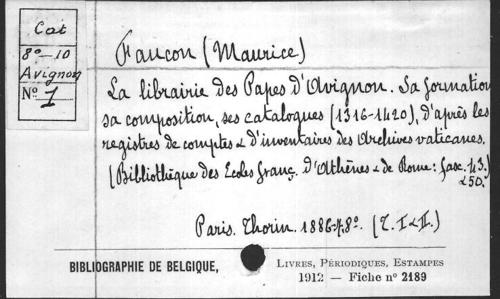 Cat
8º-10
Avignon
Nº 1
Faucon (Maurice)
La librairie des Papes d'Avignon. Sa formation
sa composition, ses catalogues (1316-1420), d'après les
registres de comptes & d'inventaires des Archives vaticanes.
(Bibliothèque des Ecoles franç. d'Athènes & de Rome: fasc. 43.
& 50.)
Paris. Thorin. 1886-7. 8º. (T. I & II.)
BIBLIOGRAPHIE DE BELGIQUE,
LIVRES, PÉRIODIQUES, ESTAMPES
1912 — Fiche nº 2189